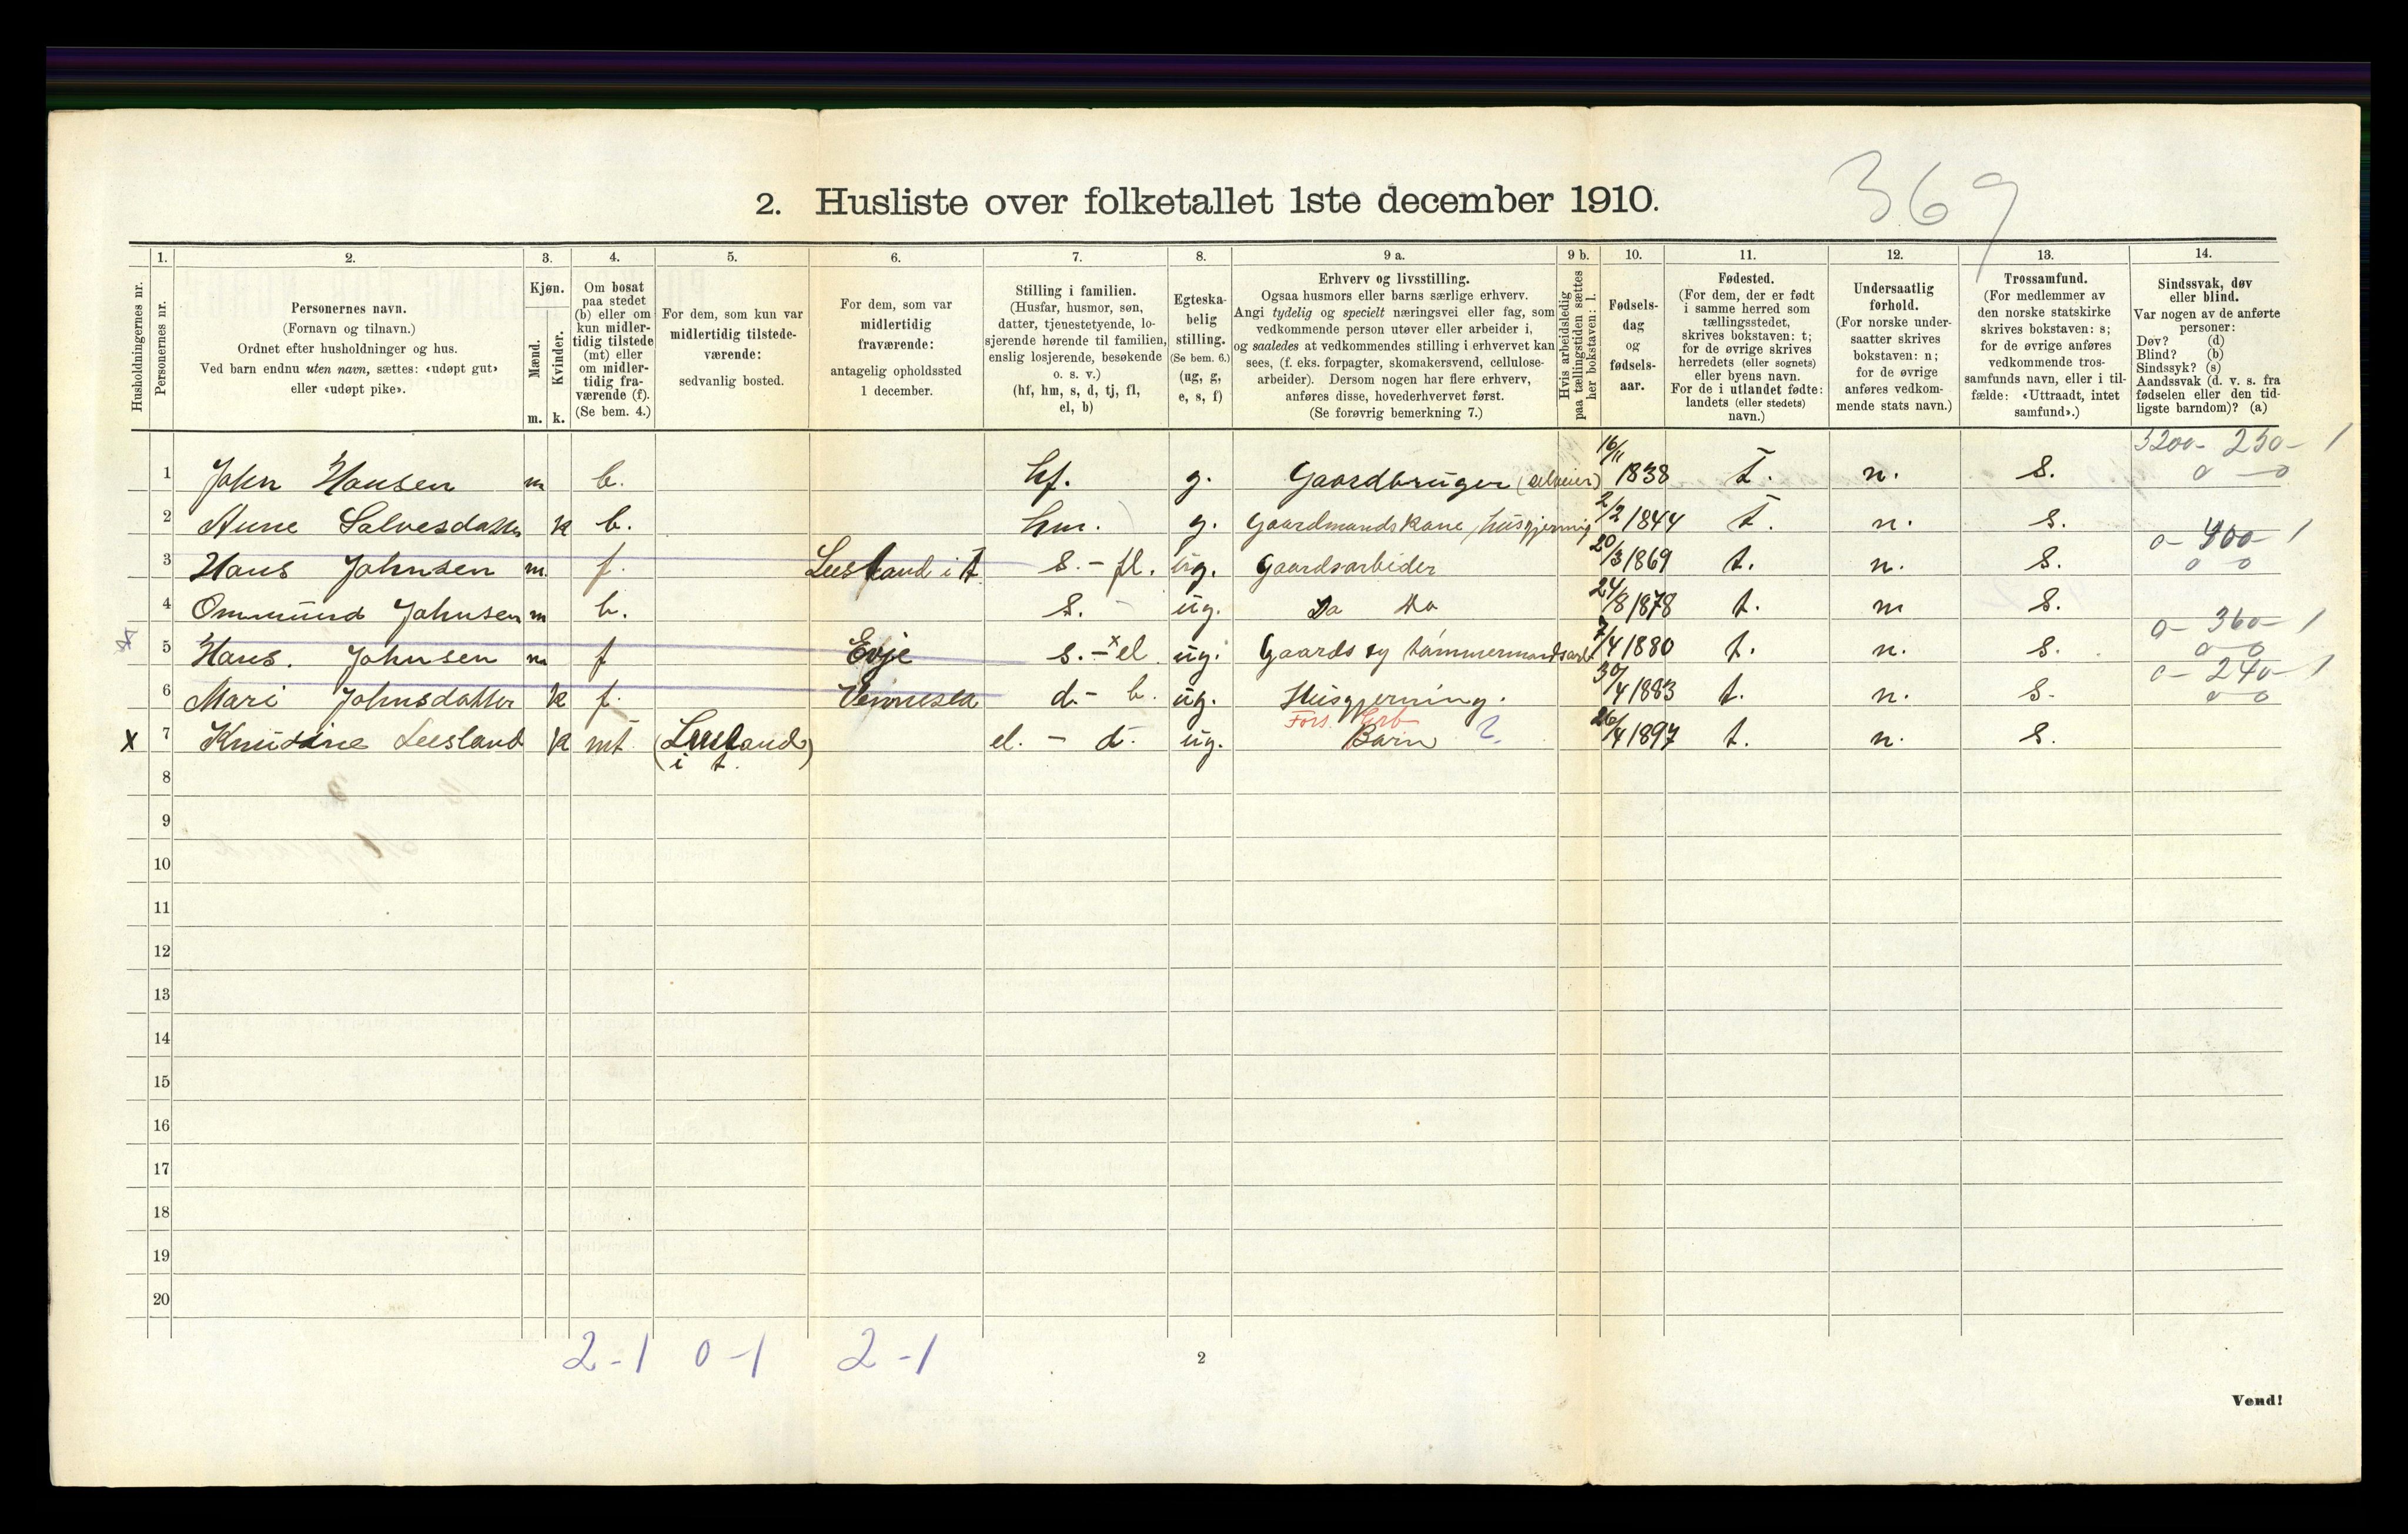 369
2. Husliste over folketallet 1ste december 1910.
Husholdningernes nr.
1.
Personernes nr.
2.
Personernes navn.
(Fornavn og tilnavn.)
Ordnet efter husholdninger og hus.
Ved barn endnu uten navn, sættes: «udøpt gut»
eller «udøpt pike».
3.
Kjøn.
Mænd.
Kvinder.
m. k.
4.
Om bosat
paa stedet
(b) eller om
kun midler-
tidig tilstede
(mt) eller
om midler-
tidig fra-
værende (f).
(Se bem. 4.)
5.
For dem, som kun var
midlertidig tilstede-
værende:
sedvanlig bosted.
6.
For dem, som var
midlertidig
fraværende:
antagelig opholdssted
1 december.
7.
Stilling i familien.
(Husfar, husmor, søn,
datter, tjenestetyende, lo-
sjerende hørende til familien,
enslig losjerende, besøkende
o. s. v.)
(hf, hm, s, d, tj, fl,
el, b)
8.
Egteska-
belig
stilling.
(Se bem. 6.)
(ug, g,
e, s, f)
9 a.
Erhverv og livsstilling.
Ogsaa husmors eller barns særlige erhverv.
Angi tydelig og specielt næringsvei eller fag, som
vedkommende person utøver eller arbeider i,
og saaledes at vedkommendes stilling i erhvervet kan
sees, (f. eks. forpagter, skomakersvend, cellulose-
arbeider). Dersom nogen har flere erhverv,
anføres disse, hovederhvervet først.
(Se forøvrig bemerkning 7.)
9 b.
Hvis arbeidsledig
paa tællingstiden sættes
her bokstaven: l.
10.
Fødsels-
dag
og
fødsels-
aar.
11.
Fødested.
(For dem, der er født
i samme herred som
tællingsstedet,
skrives bokstaven: t;
for de øvrige skrives
herredets (eller sognets)
eller byens navn.
For de i utlandet fødte:
landets (eller stedets)
navn.)
12.
Undersaatlig
forhold.
(For norske under-
saatter skrives
bokstaven: n;
for de øvrige
anføres vedkom-
mende stats navn.)
13.
Trossamfund.
(For medlemmer av
den norske statskirke
skrives bokstaven: s;
for de øvrige anføres
vedkommende tros-
samfunds navn, eller i til-
fælde: «Uttraadt, intet
samfund».)
14.
Sindssvak, døv
eller blind.
Var nogen av de anførte
personer:
Døv? (d)
Blind? (b)
Sindssyk? (s)
Aandssvak (d. v. s. fra
fødselen eller den tid-
ligste barndom)? (a)
3200- 250- 1
1 John Hansen m b. hf. g. Gaardbruger (selveier) 16/11 1838 t. n. s. 0 - 0
2 Anne Salvesdatter k b. hm. g. Gaardmandskone, husgjerning 2/2 1844 t. n. s.
0- 400- 1
3 Hans Johnsen m. f. Leesland i t s. - fl. ug. Gaardsarbeider 20/3 1869 t. n. s. 0 0
4 Ommund Johnsen m b. s. - ug. Do Do 24/8 1878 t. n s.
0- 360- 1
5 Hans. Johnsen m f Evje s. - x el ug. Gaards og tømmermandsarb 7/4 1880 t. n. s. 0 0
0- 240- 1
6 Mari Johnsdatter k f. Vennesla d - b. ug. Husgjerning. 30/4 1883 t. n. s. 0 0
Fors. Erb
x 7 Knudsine Leesland k mt (Leesland i t.) el. - d. ug. Barn 26/4 1897 t. n. s.
8
9
10
11
12
13
14
15
16
17
18
19
20
2-1 0-1 2-1
2
Vend!